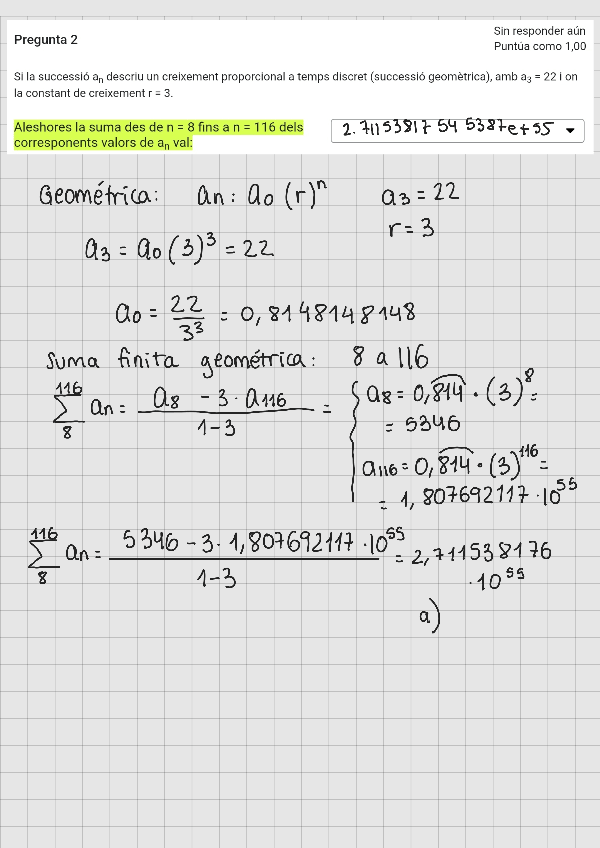 Pregunta 2
Sin responder aún
Puntúa como 1,00
Si la successió aₙ descriu un creixement proporcional a temps discret (successió geomètrica), amb a₃ = 22 i on
la constant de creixement r = 3.
Aleshores la suma des de n = 8 fins a n = 116 dels
corresponents valors de aₙ val:
2.71153817 54 5387e+55
Geométrica: an: a₀ (r)ⁿ a₃ = 22
r = 3
a₃ = a₀ (3)³ = 22
a₀ = 22/3³ = 0,8148148148
Suma finita geométrica: 8 a 116
116 ∑ 8 an = (a₈ - 3 · a₁₁₆)/(1-3) =
a₈ = 0,814 · (3)⁸ =
= 5346
a₁₁₆ = 0,814 · (3)¹¹⁶ =
= 1,807692117 · 10⁵⁵
116 ∑ 8 an = (5346 - 3 · 1,807692117 · 10⁵⁵)/(1-3) = 2,711538176
· 10⁵⁵
a)